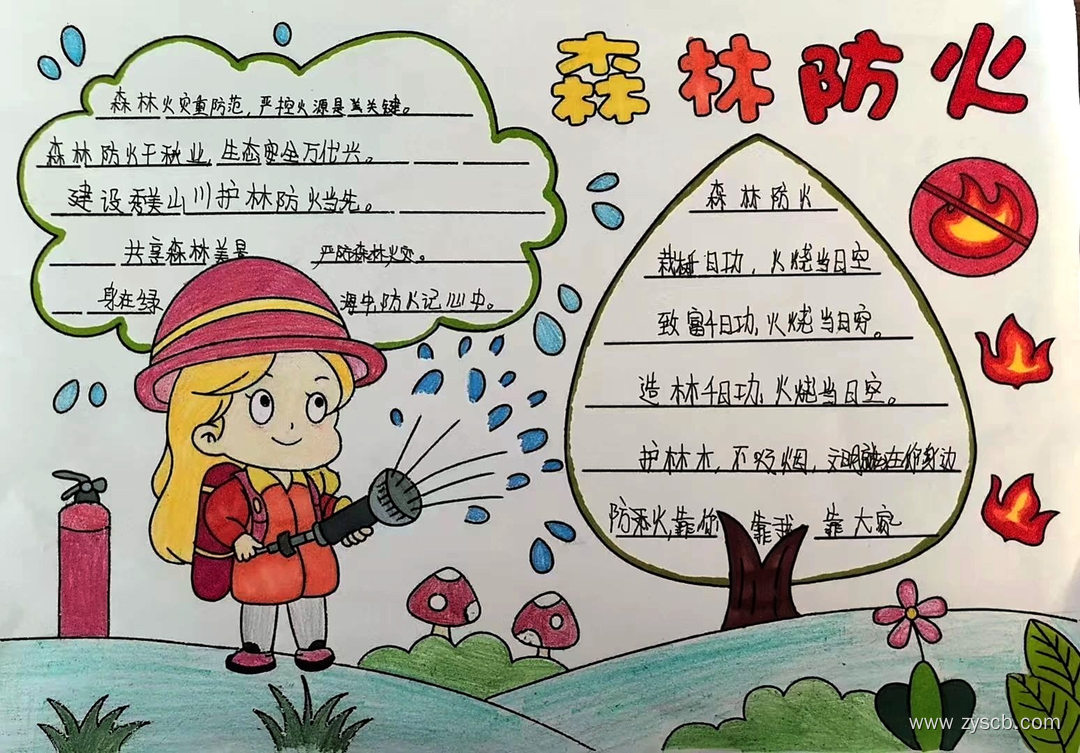 森林防火
森林火灾重防范，严控火源是关键。
森林防火千秋业，生态安全万代兴。
建设秀美山川护林防火当先。
共享森林美景 严防森林火灾。
身在绿 海中，防火记心中。
森林防火
栽树千日功，火烧当日空
致富千日功，火烧当日穷。
造林千日功，火烧当日空。
护林木，不吸烟，文明就在你身边
防火，靠你 靠我 靠大家
www.zyscb.com